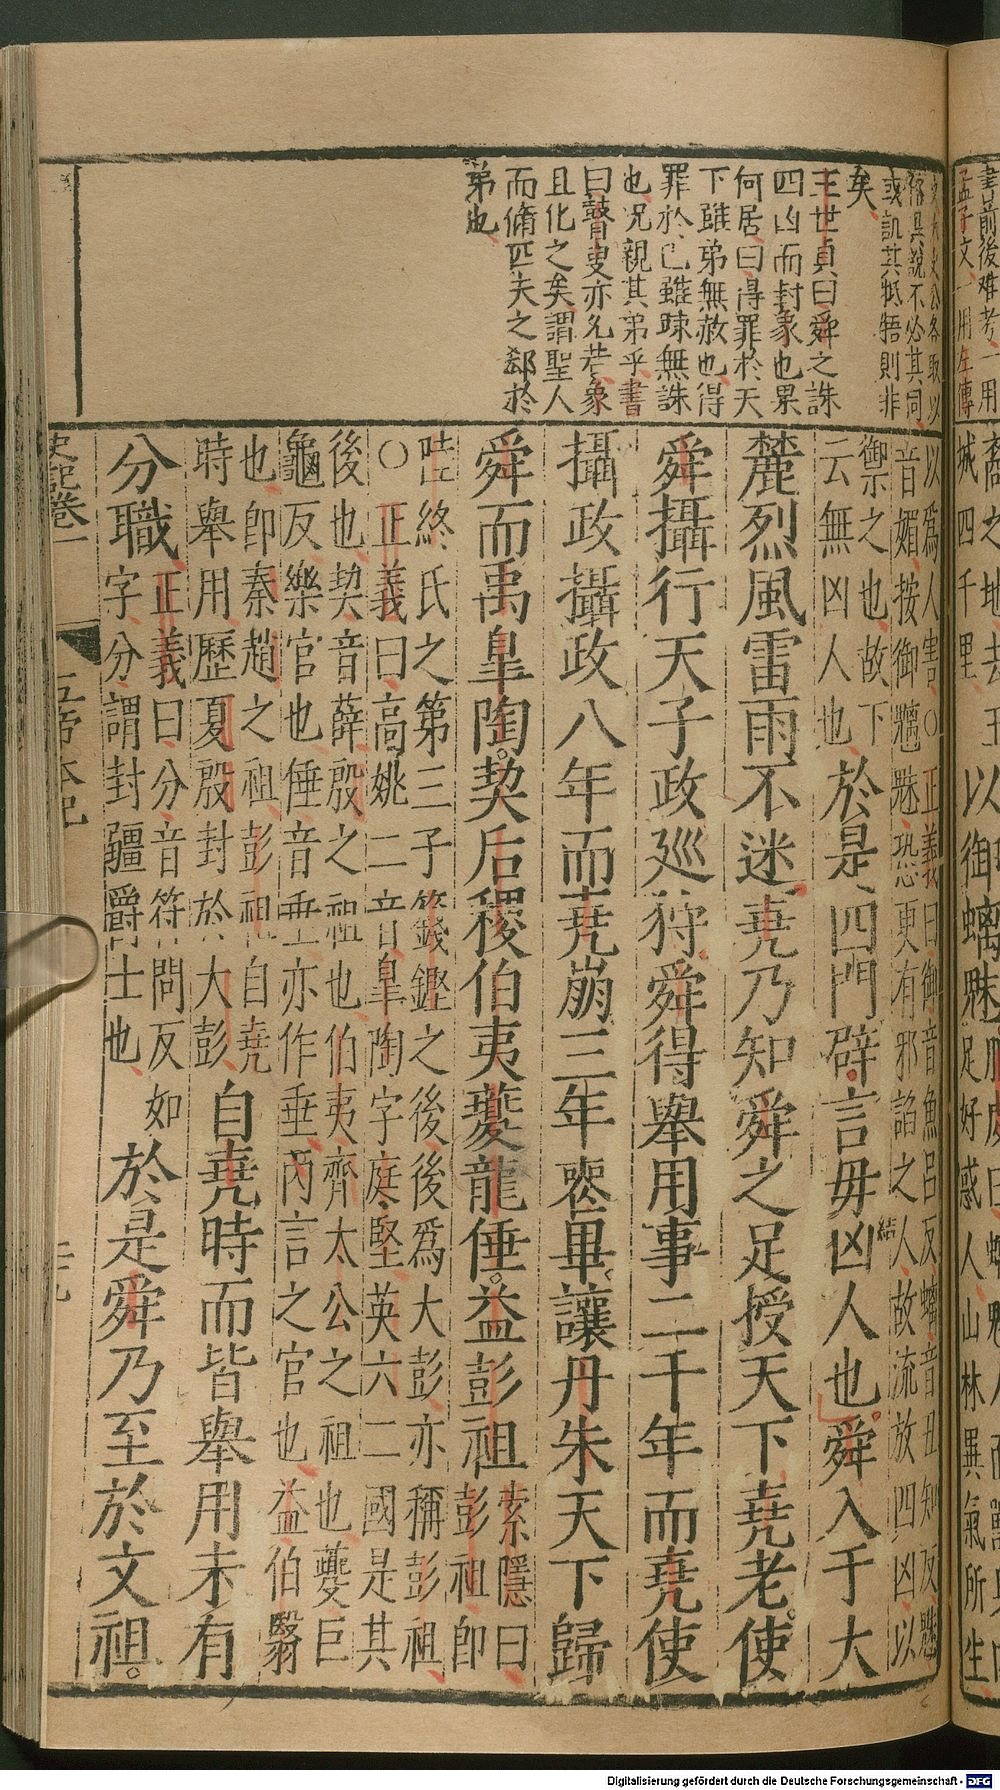 書前後难考一用
孟子文一用左傳
城四千里
以御螭魅
足好惑人山林異氣所生
備其說不必其同
或訊其牴牾則非
矣
王世貞曰舜之誅
四凶而封象也累
何居曰得罪於天
下雖弟無赦也得
罪於已雖踈無誅
也况親其弟乎書
曰瞽叟亦允若象
且化之矣謂聖人
而脩匹夫之郄於
弟也
以爲人害○正義曰御音魚呂反螭音丑知反魅
音媚按御魑魅恐更有邪諂之人故流放四凶以
御之也故下
云無凶人也
於是四門辟言毋凶人也舜入于大
麓烈風雷雨不迷堯乃知舜之足授天下堯老使
舜攝行天子政巡狩舜得舉用事二千年而堯使
攝政攝政八年而堯崩三年喪畢讓丹朱天下歸
舜而禹皐陶契后稷伯夷夔龍倕益彭祖
索隱曰
彭祖即
陸終氏之第三子籛鏗之後後爲大彭亦稱彭祖
○正義曰高姚二音皐陶字庭堅英六二國是其
後也契音薛殷之祖也伯夷齊太公之祖也夔巨
龜反樂官也倕音垂亦作垂芮言之官也益伯翳
也即秦趙之祖彭祖自堯
時舉用歷夏殷封於大彭
自堯時而皆舉用未有
分職
正義曰分音符問反如
字分謂封疆爵士也
於是舜乃至於文祖
史記卷一
五帝本紀
Digitalisierung gefördert durch die Deutsche Forschungsgemeinschaft - DFG